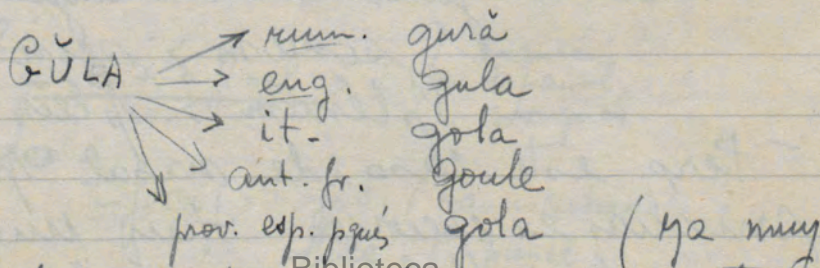 GŬLA
rum. gură
eng. gula
it. gola
ant. fr. goule
prov. esp. pgués gola (ya muy
Biblioteca